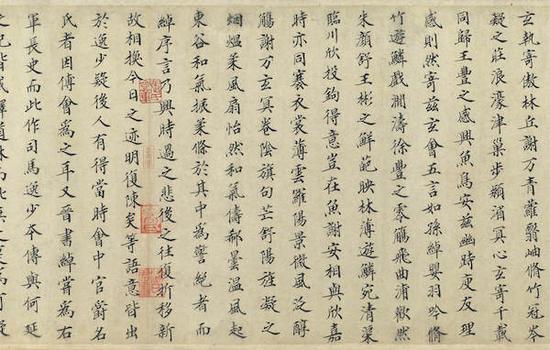 玄執寄傲林丘謝万青蘿翳岫脩竹冠岑
凝之莊浪濠津巢步潁湄冥心玄寄千載
同歸王豊之感興魚鳥安茲幽跱庾友理
感則然寄茲玄會五言如孫綽嬰羽吟脩
竹遊鱗戲瀾濤徐豊之零觴飛曲浦歡然
朱顏舒王彬之鮮葩映林薄遊鱗宛清渠
臨川欣投鉤得意豈在魚謝安相與欣嘉
時亦同褰衣裳薄雲羅陽景微風泛醇
觴謝万玄冥卷陰旗句芒舒陽旌凝之
烟熅柔風扇怡然和氣儔郗曇温風起
東谷和氣振柔條於其中為警絶者而
綽序言乃興時過之悲後之往復折移新
故相換今日之迹明復陳矣等語意皆出
於逸少疑後人有得當時會中官爵名
氏者因傅會為之耳又晉書綽嘗為右
軍長史而此作司馬逸少本傳與何延